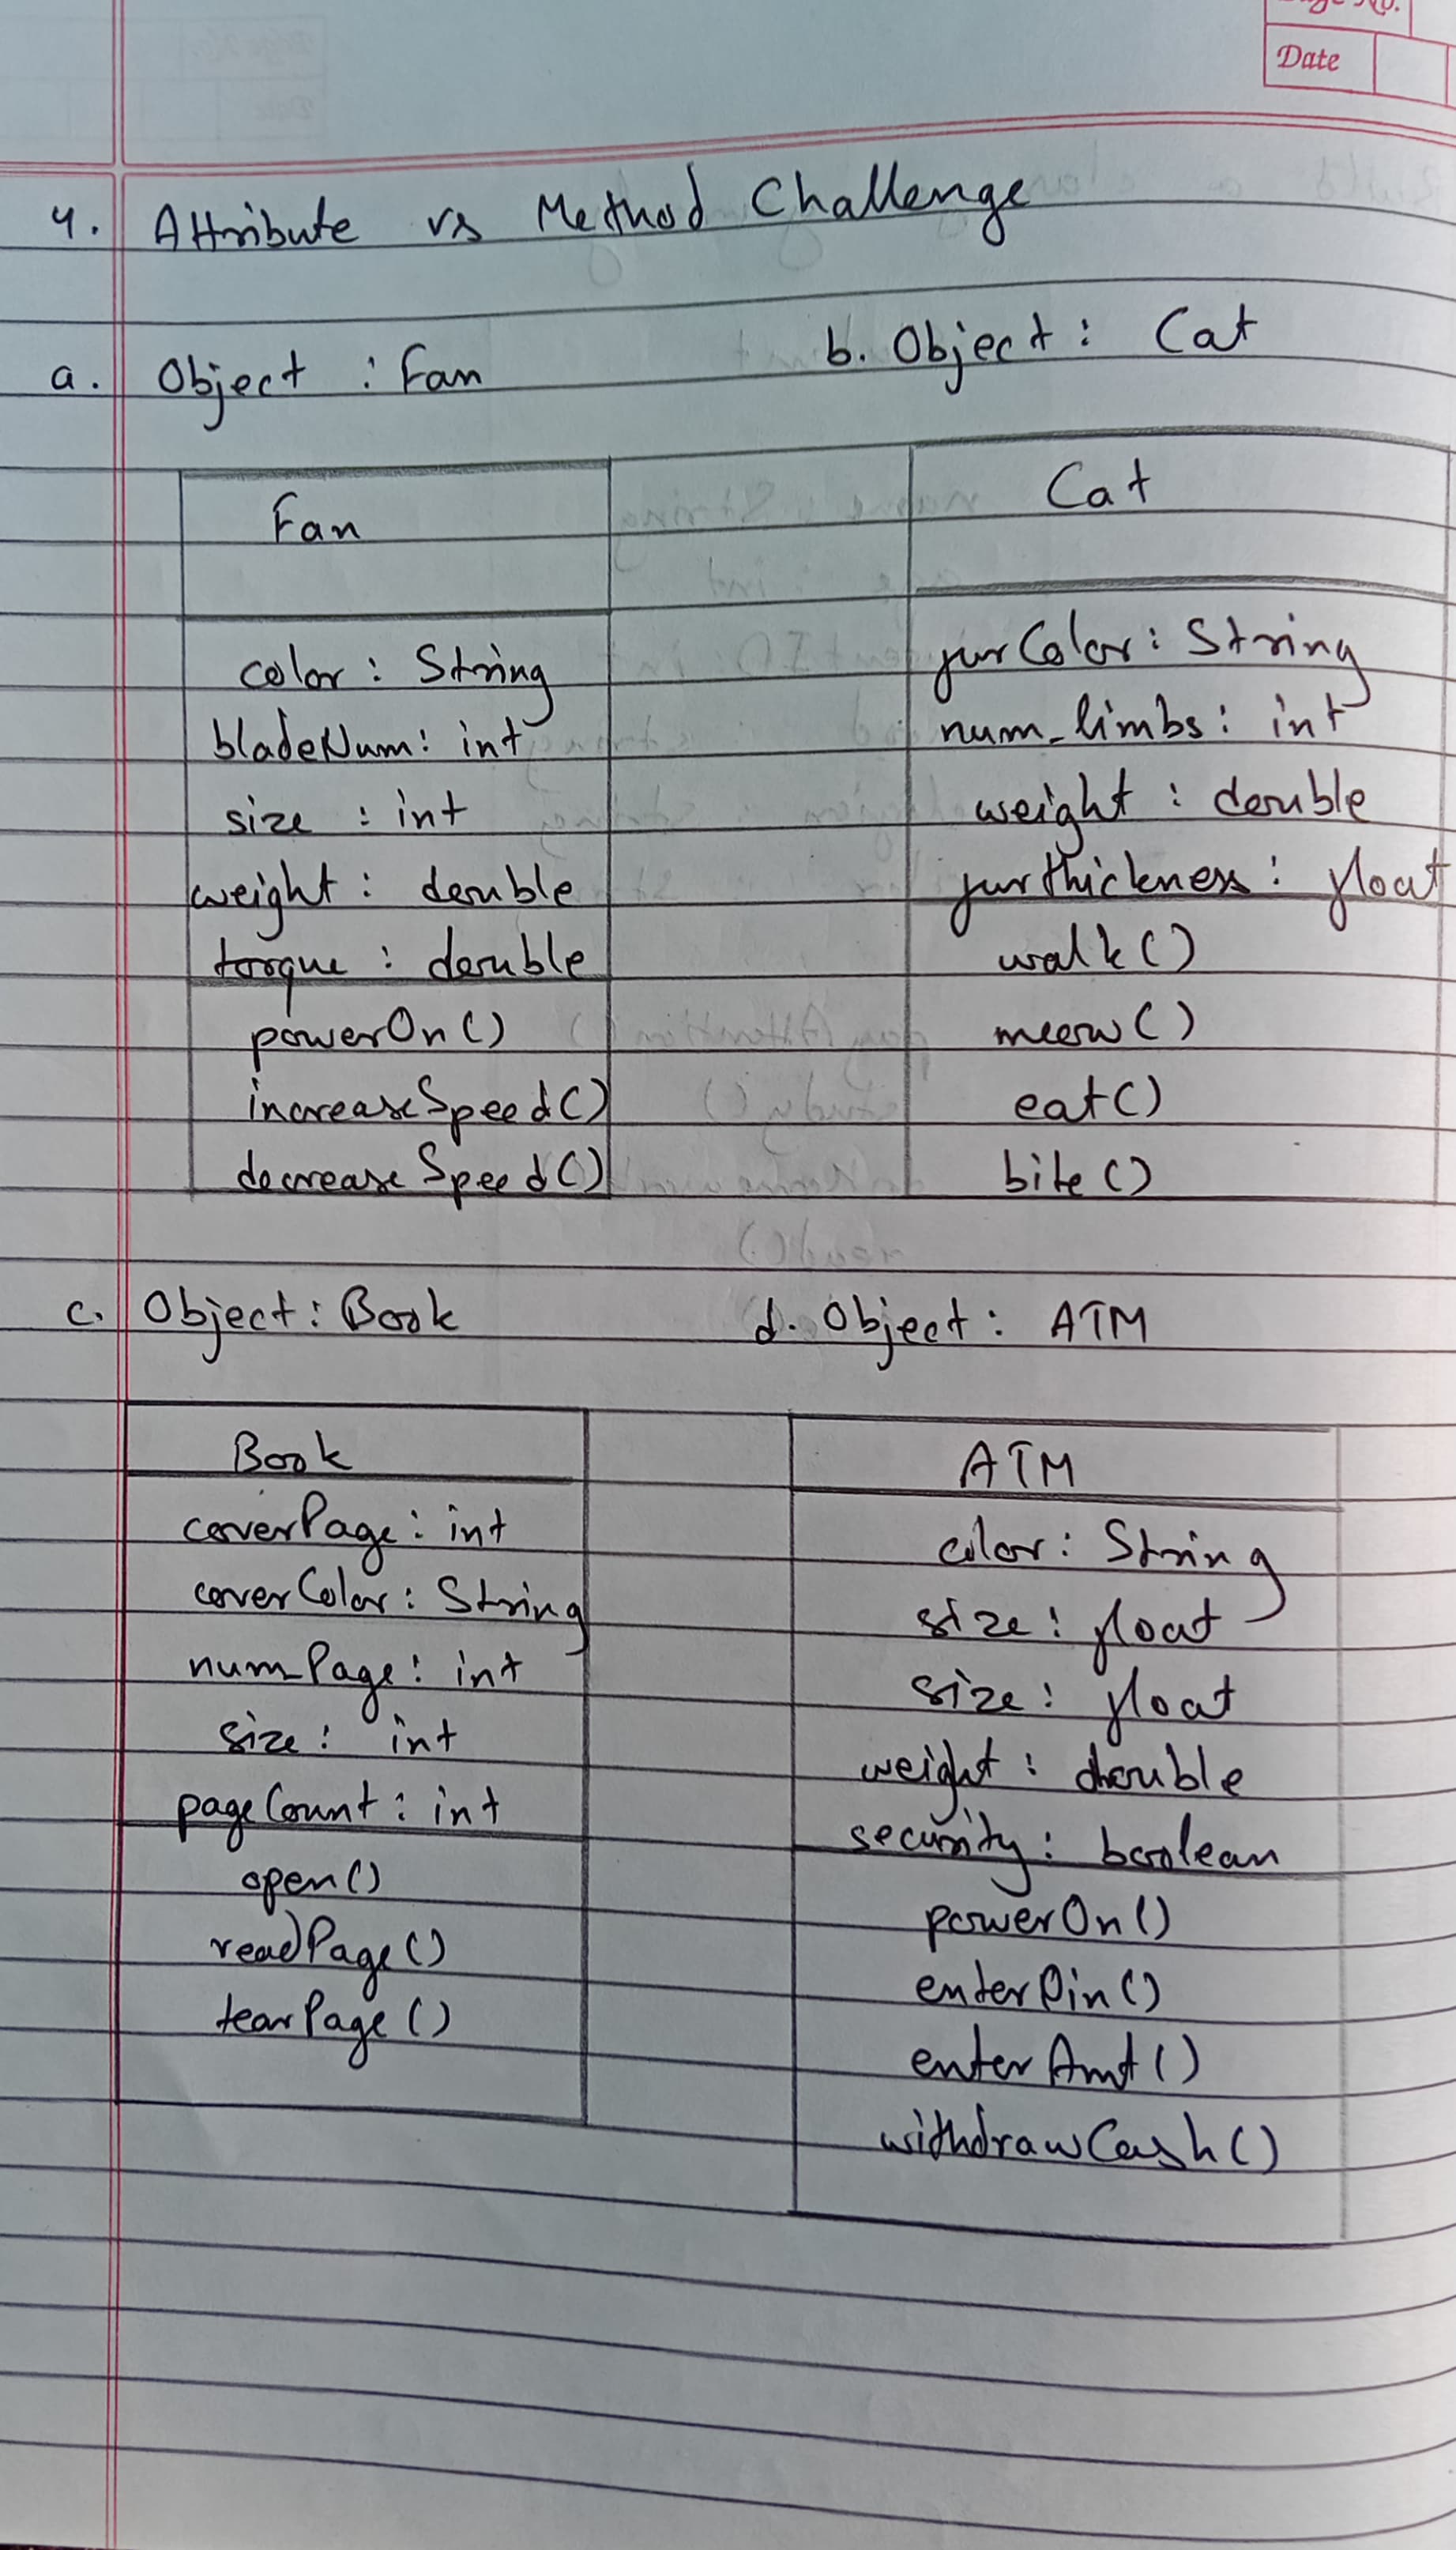 Date
4. Attribute vs Method Challenge
a. Object : Fan
b. Object : Cat
Fan
color : String
bladeNum : int
size : int
weight : double
torque : double
powerOn()
increaseSpeed()
decreaseSpeed()
Cat
furColor : String
num_limbs : int
weight : double
furthickness : float
walk()
meow()
eat()
bite()
c. Object : Book
d. Object : ATM
Book
coverPage : int
coverColor : String
num_Page : int
size : int
pageCount : int
open()
readPage()
tearPage()
ATM
color : String
size : float
size : float
weight : double
security : boolean
powerOn()
enterPin()
enterAmt()
withdrawCash()